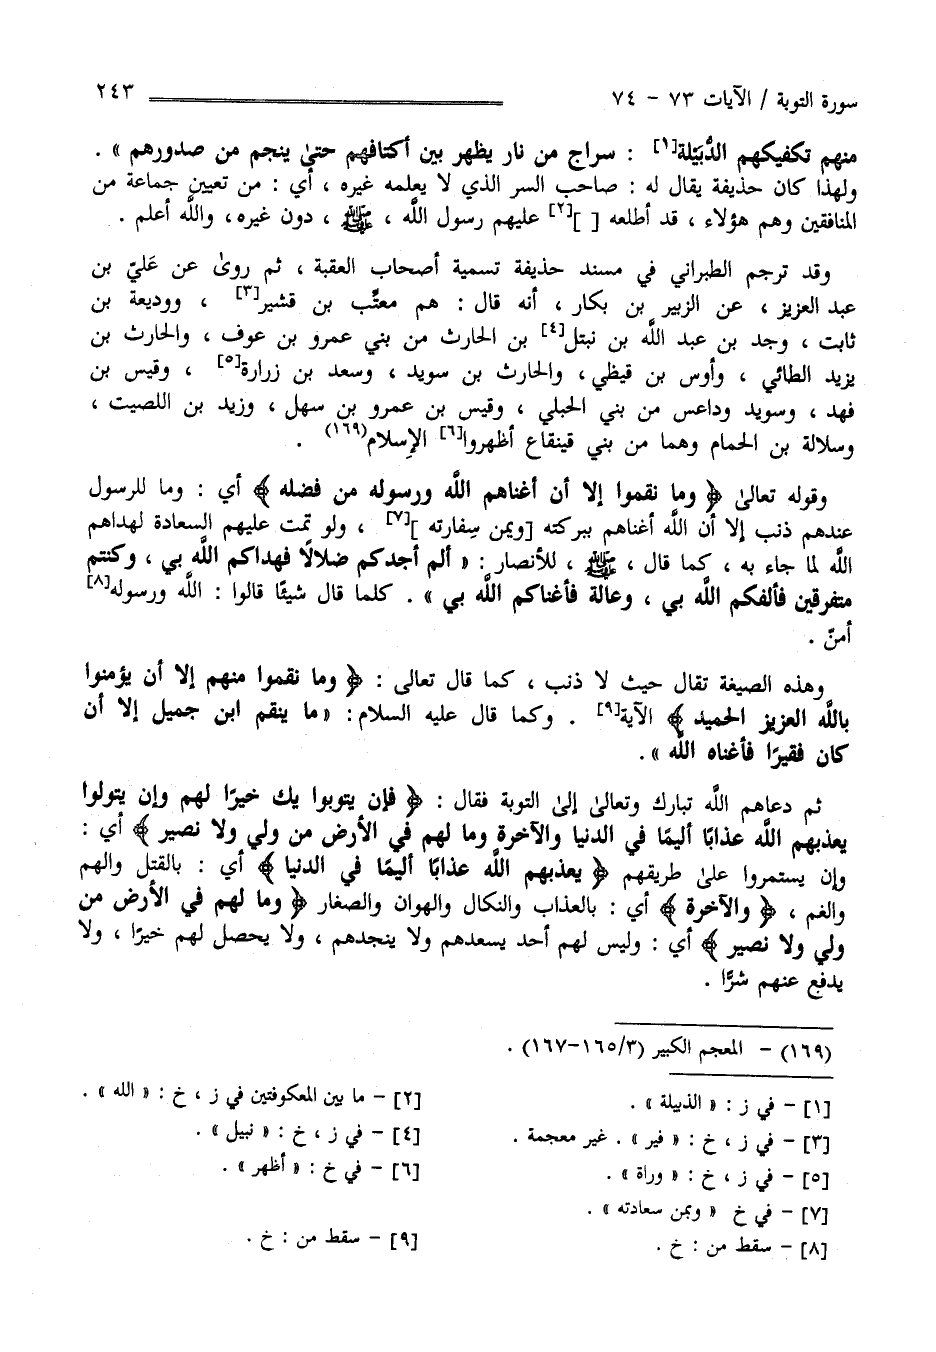 سورة التوبة / الآيات ٧٣ - ٧٤ ٢٤٣
منهم تكفيكهم الدُّبَيْلة[١] : سراج من نار يظهر بين أكتافهم حتىٰ ينجم من صدورهم » .
ولهذا كان حذيفة يقال له : صاحب السر الذي لا يعلمه غيره ، أي : من تعيين جماعة من
المنافقين وهم هؤلاء ، قد أطلعه [ ][٢] عليهم رسول اللَّه ، ﷺ ، دون غيره، واللَّه أعلم .
وقد ترجم الطبراني في مسند حذيفة تسمية أصحاب العقبة ، ثم روىٰ عن عَليّ بن
عبد العزيز ، عن الزبير بن بكار ، أنه قال : هم معتَّب بن قشير[٣] ، ووديعة بن
ثابت ، وجد بن عبد اللَّه بن نبتل[٤] بن الحارث من بني عمرو بن عوف ، والحارث بن
يزيد الطائي ، وأوس بن قيظي، والحارث بن سويد ، وسعد بن زرارة[٥] ، وقيس بن
فهد ، وسويد وداعس من بني الحبلي ، وقيس بن عمرو بن سهل ، وزيد بن اللصيت ،
وسلالة بن الحمام وهما من بني قينقاع أظهروا[٦] الإسلام(١٦٩) .
وقوله تعالىٰ ﴿ وما نقموا إلا أن أغناهم اللَّه ورسوله من فضله ﴾ أي : وما للرسول
عندهم ذنب إلا أن اللَّه أغناهم ببركته [ويمن سِفارته ][٧] ، ولو تمت عليهم السعادة لهداهم
اللَّه لما جاء به ، كما قال ، ﷺ ، للأنصار : « ألم أجدكم ضلالًا فهداكم اللَّه بي ، وكنتم
متفرقين فألفكم اللَّه بي ، وعالة فأغناكم اللَّه بي » . كلما قال شيئًا قالوا : اللَّه ورسوله[٨]
أمنّ .
وهذه الصيغة تقال حيث لا ذنب ، كما قال تعالى : ﴿ وما نقموا منهم إلا أن يؤمنوا
باللَّه العزيز الحميد ﴾ الآية[٩] . وكما قال عليه السلام: «ما ينقم ابن جميل إلا أن
كان فقيرًا فأغناه اللَّه ».
ثم دعاهم اللَّه تبارك وتعالىٰ إلىٰ التوبة فقال : ﴿ فإن يتوبوا يك خيرًا لهم وإن يتولوا
يعذبهم اللَّه عذابًا أليمًا في الدنيا والآخرة وما لهم في الأرض من ولي ولا نصير ﴾ أي :
وإن يستمروا علىٰ طريقهم ﴿ يعذبهم اللَّه عذابًا أليمًا في الدنيا ﴾ أي : بالقتل والهم
والغم ، ﴿ والآخرة ﴾ أي : بالعذاب والنكال والهوان والصغار ﴿ وما لهم في الأرض من
ولي ولا نصير ﴾ أي : وليس لهم أحد يسعدهم ولا ينجدهم ، ولا يحصل لهم خيرًا ، ولا
يدفع عنهم شرًّا .
(١٦٩) - المعجم الكبير (١٦٥/٣-١٦٧) .
[١] - في ز : « الذبيلة » . [٢] - ما بين المعكوفتين في ز ، خ : « الله » .
[٣] - في ز ، خ : « فير » . غير معجمة . [٤] - في ز ، خ : « نبيل » .
[٥] - في ز ، خ : « وراة » . [٦] - في خ : « أظهر » .
[٧] - في خ « وبمن سعادته » .
[٨] - سقط من : خ . [٩] - سقط من : خ .